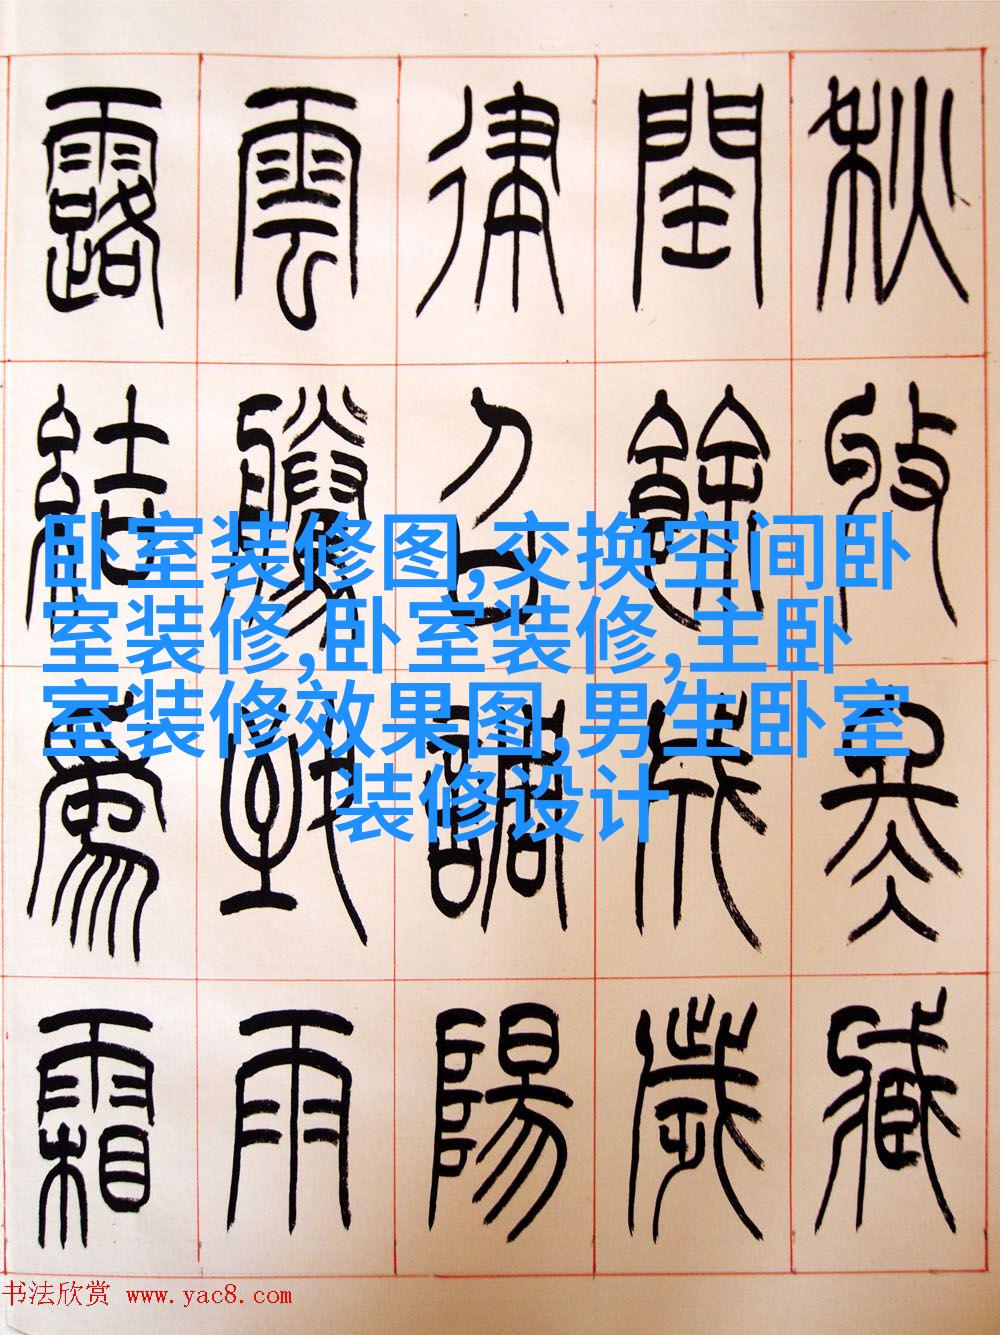 秋收冬臧
閏餘成歲
律召調陽
雲騰致雨
露結爲霜
卧室装修图,交换空间卧
室装修,卧室装修,主卧
室装修效果图,男生卧室
装修设计
书法欣赏 www.yac8.com